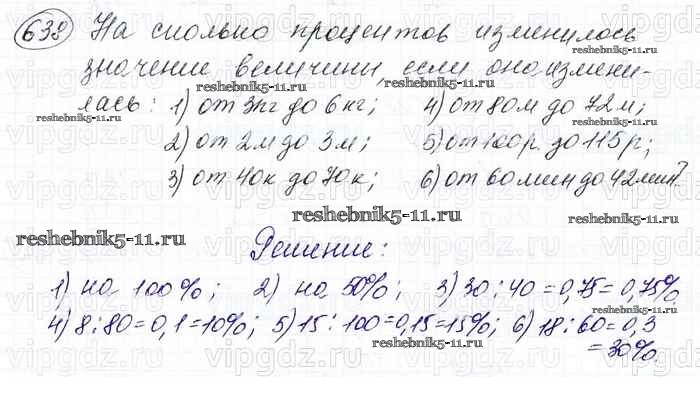 638 На сколько процентов изменилось
значение величини, если она измени-
лась: 1) от 3кг до 6кг; 4) от 80м до 72м;
2) от 2м до 3м; 5) от 100р. до 115р;
3) от 40к до 70к; 6) от 60 мин до 42мин?
Решение:
1) на 100%; 2) на 50%; 3) 30:40=0,75=0,75%
4) 8:80=0,1=10%; 5) 15:100=0,15=15%; 6) 18:60=0,3
=30%.
reshebnik5-11.ru
reshebnik5-11.ru
reshebnik5-11.ru
reshebnik5-11.ru
reshebnik5-11.ru
reshebnik5-11.ru
reshebnik5-11.ru
reshebnik5-11.ru
reshebnik5-11.ru
vipgdz.ru